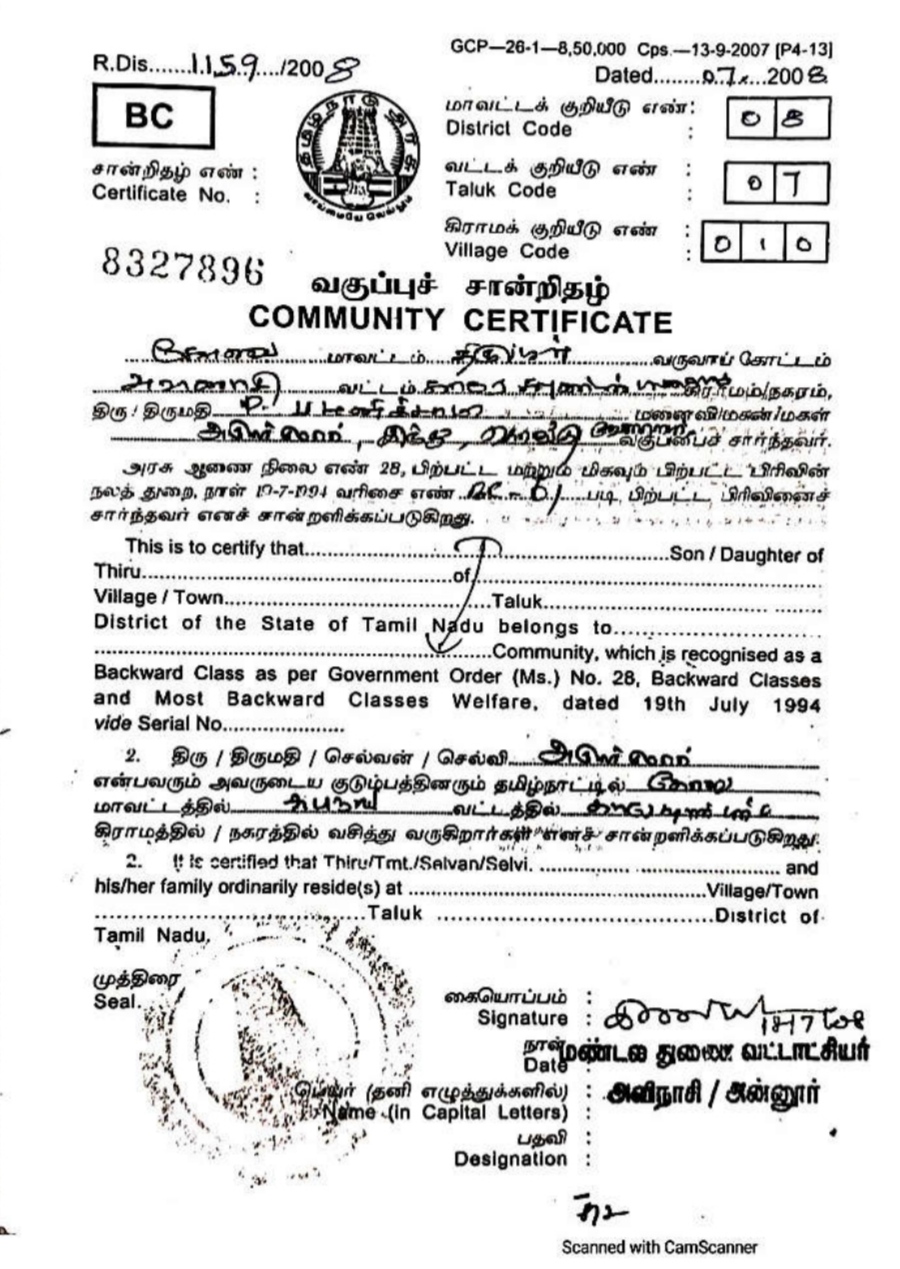 GCP—26-1—8,50,000 Cps.—13-9-2007 [P4-13]
R.Dis.......1159..../2008
Dated........07......2008
BC
தமிழ்நாடு அரசு
வாய்மையே வெல்லும்
மாவட்டக் குறியீடு எண் :
District Code : 08
சான்றிதழ் எண் :
Certificate No. :
வட்டக் குறியீடு எண் :
Taluk Code : 07
கிராமக் குறியீடு எண் :
Village Code : 010
8327896
வகுப்புச் சான்றிதழ்
COMMUNITY CERTIFICATE
கோவை மாவட்டம் திருப்பூர் வருவாய் கோட்டம்
அவினாசி வட்டம் கிராமம்/நகரம்,
திரு / திருமதி P. பழனிச்சாமி மனைவி/மகன்/மகள்
இந்து வகுப்பைச் சார்ந்தவர்.
அரசு ஆணை நிலை எண் 28, பிற்பட்ட மற்றும் மிகவும் பிற்பட்ட பிரிவின்
நலத் துறை, நாள் 19-7-1994 வரிசை எண் படி, பிற்பட்ட பிரிவினைச்
சார்ந்தவர் எனச் சான்றளிக்கப்படுகிறது.
This is to certify that..............................Son / Daughter of
Thiru..............................of..............................
Village / Town..............................Taluk..............................
District of the State of Tamil Nadu belongs to..............................
..............................Community, which is recognised as a
Backward Class as per Government Order (Ms.) No. 28, Backward Classes
and Most Backward Classes Welfare, dated 19th July 1994
vide Serial No....................
2. திரு / திருமதி / செல்வன் / செல்வி
என்பவரும் அவருடைய குடும்பத்தினரும் தமிழ்நாட்டில் கோவை
மாவட்டத்தில் வட்டத்தில்
கிராமத்தில் / நகரத்தில் வசித்து வருகிறார்கள் எனச் சான்றளிக்கப்படுகிறது.
2. It is certified that Thiru/Tmt./Selvan/Selvi. .............................. and
his/her family ordinarily reside(s) at ..............................Village/Town
..............................Taluk ..............................District of
Tamil Nadu.
முத்திரை
Seal.
கையொப்பம் :
Signature :
18/7/08
நாள்
Date
மண்டல துணை வட்டாட்சியர்
அவிநாசி / அன்னூர்
பெயர் (தனி எழுத்துக்களில்) :
Name (in Capital Letters) :
பதவி :
Designation :
Scanned with CamScanner